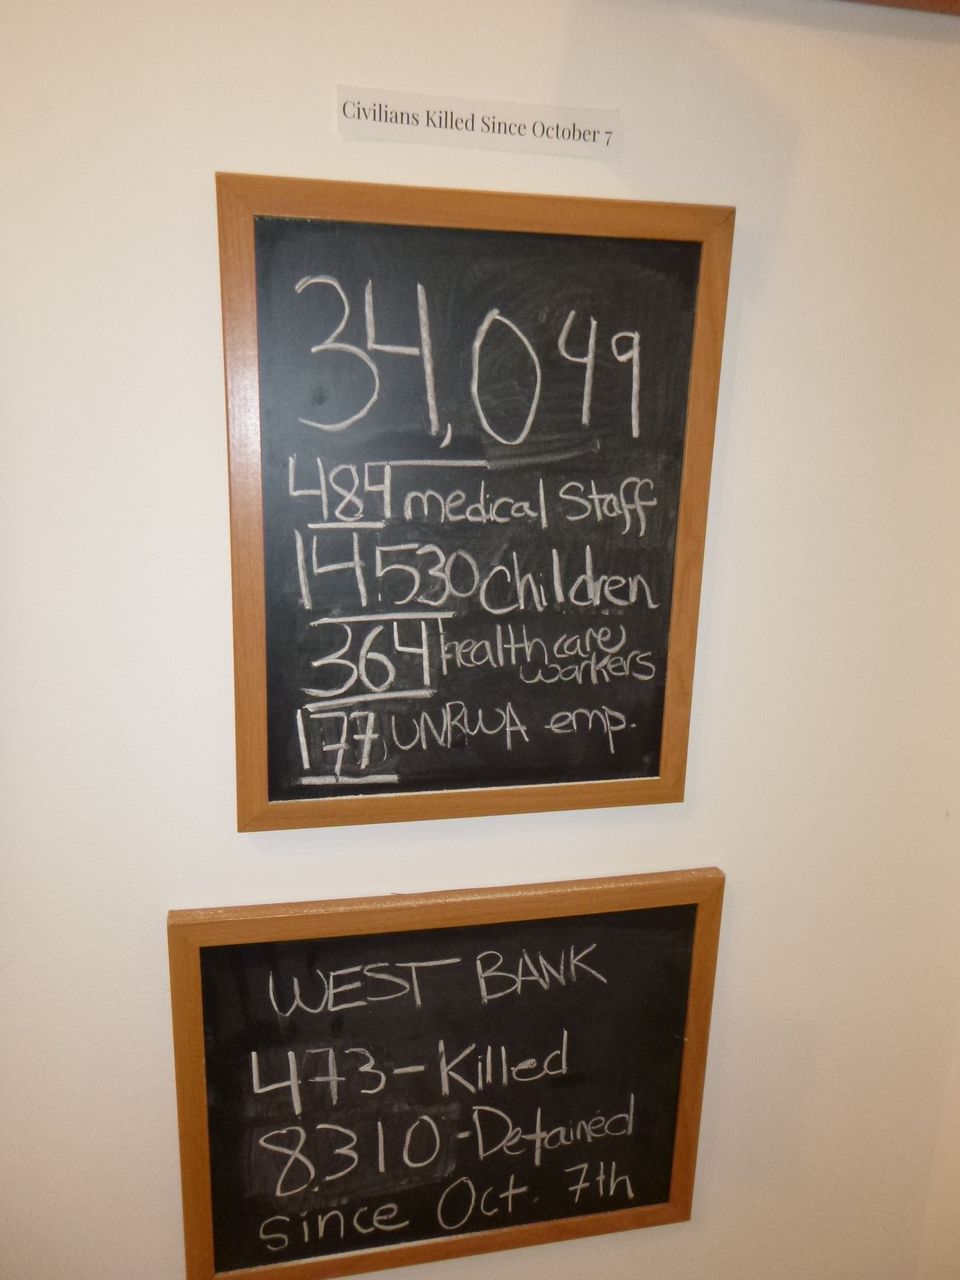 Civilians Killed Since October 7
34,049
484 medical Staff
14.530 Children
364 healthcare
workers
177 UNRWA emp.
WEST BANK
473-Killed
8.310-Detained
since Oct. 7th